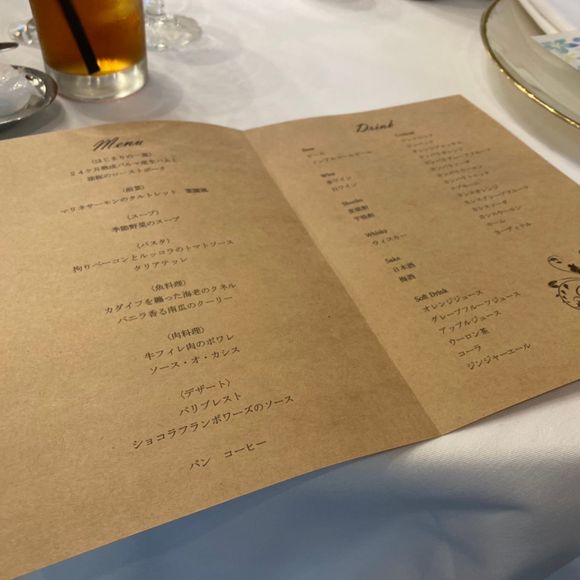 Menu
(はじまりの一皿)
24ヶ月熟成パルマ産生ハムと
(前菜)
マリネサーモンのタルトレット
(スープ)
季節野菜のスープ
(パスタ)
拘りベーコンとルッコラのトマトソース
タリアテッレ
(魚料理)
カダイフを纏った海老のクネル
バニラ香る南瓜のクーリー
(肉料理)
牛フィレ肉のポワレ
ソース・オ・カシス
(デザート)
パリブレスト
ショコラフランボワーズのソース
パン コーヒー
Drink
Beer
ビール
ノンアルコールビール
Wine
赤ワイン
白ワイン
Shochu
麦焼酎
芋焼酎
Whisky
ウィスキー
Sake
日本酒
梅酒
Soft Drink
オレンジジュース
グレープフルーツジュース
アップルジュース
ウーロン茶
コーラ
ジンジャーエール
Cocktail
カシスオレンジ
カシスグレープフルーツ
カシスソーダ
カシスウーロン